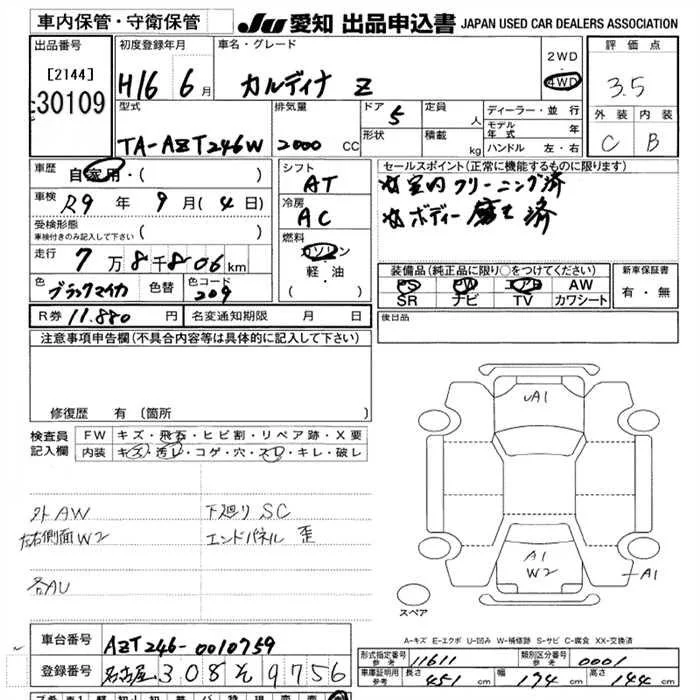 車内保管・守衛保管
JU 愛知 出品申込書 JAPAN USED CAR DEALERS ASSOCIATION
出品番号
[2144]
30109
初度登録年月
H16 6月
車名・グレード
カルディナ Z
2WD
4WD
評価点
3.5
外装 内装
C B
型式
TA-AZT246W
排気量
2000 cc
ドア
5
形状
定員
人
積載
kg
ディーラー・並行
モデル年式 年
ハンドル 左・右
車歴
自家用・( )
車検
R9年 9月(4日)
受検形態
車検付きのみ記入して下さい
( )
走行
7万8千806km
色
ブラックマイカ
色替
色コード
209
シフト
AT
冷房
AC
燃料
ガソリン
軽・油
( )
セールスポイント(正常に機能するものに限ります)
☆室内クリーニング済
☆ボディー磨き済
装備品(純正品に限り○をつけてください)
PS PW エアB AW
SR ナビ TV カワシート
新車保証書
有・無
後日品
R券 11.880円
名変通知期限 月 日
注意事項申告欄(不具合内容等は具体的に記入して下さい)
修復歴 有(箇所 )
検査員記入欄
FW キズ・飛石・ヒビ割・リペア跡・X要
内装 キズ・汚レ・コゲ・穴・スレ・キレ・破レ
外AW
下廻りSC
左右側面W2
エンドパネル 歪
各AU
A1
A1
W2
A1
スペア
A-キズ E-エクボ U-凹み W-補修跡 S-サビ C-腐食 XX-交換済
車台番号
AZT246-0010759
登録番号
名古屋 308 そ 9756
形式指定番号 参考 11611
類別区分番号 参考 0001
車庫証明用 参考
長さ 451cm
幅 174cm
高さ 144cm